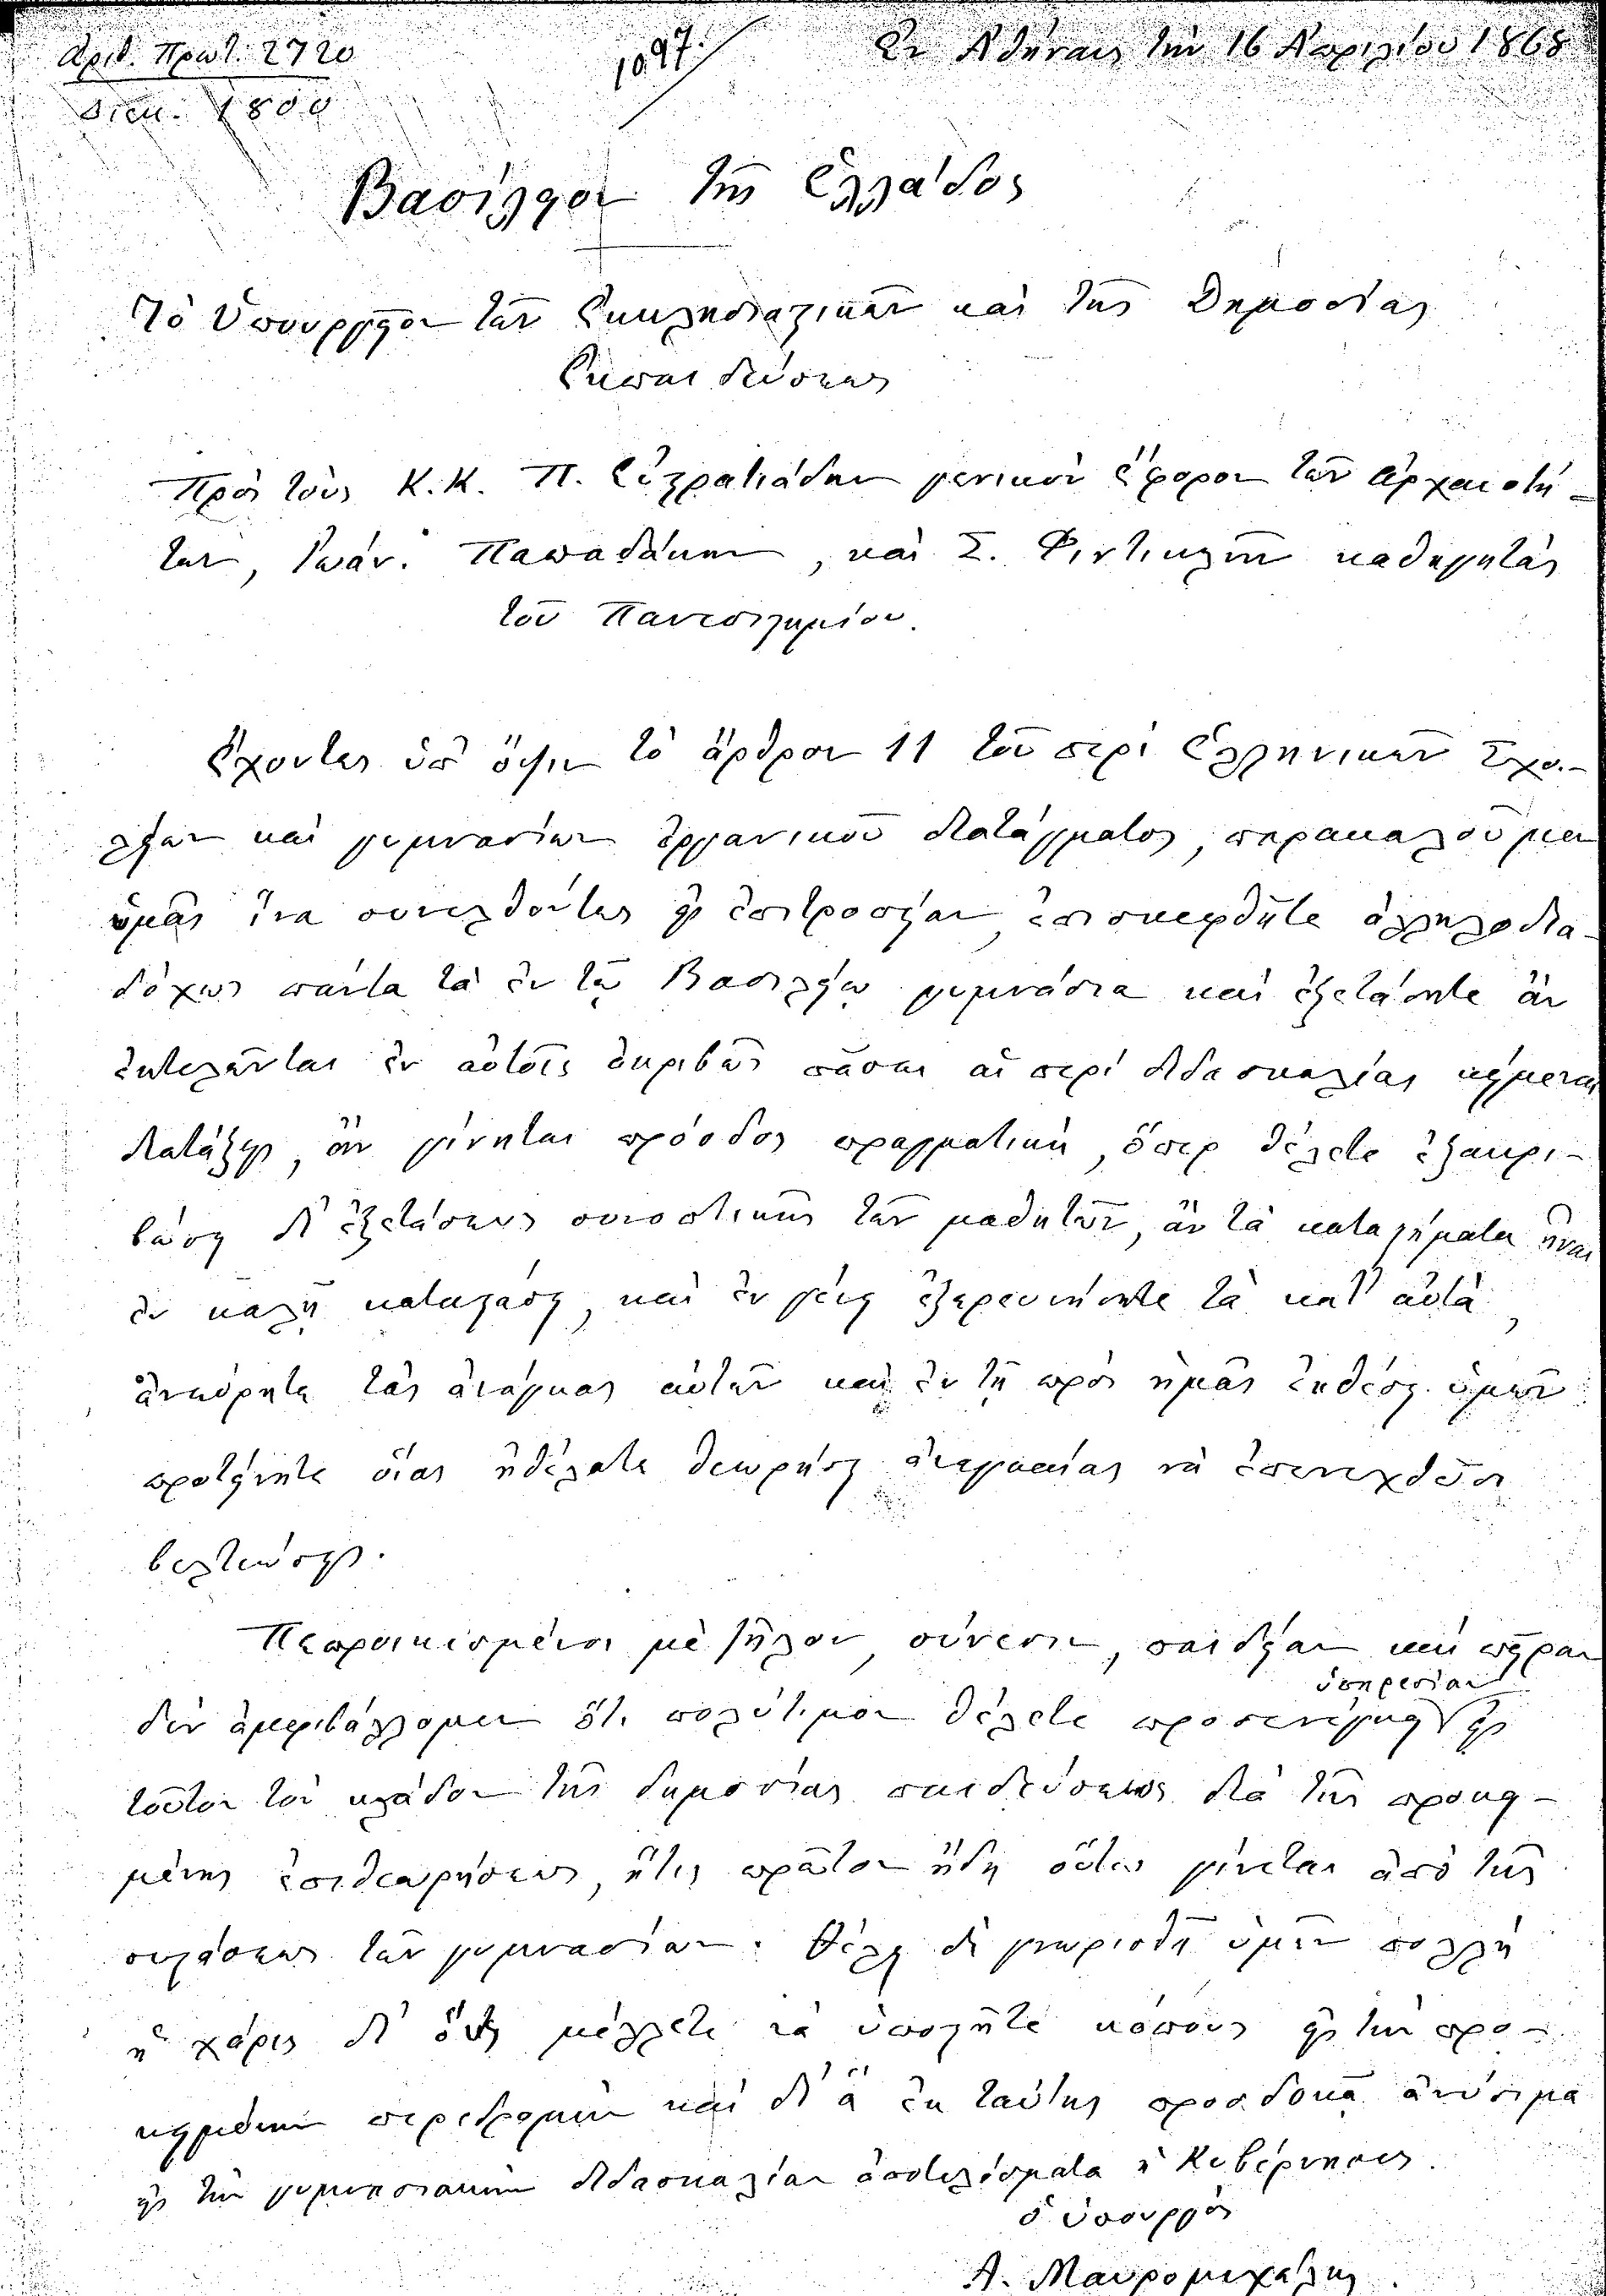 Ἀριθ. Πρωτ. 2720
Διεκ. 1800
1097.
Ἐν Ἀθήναις τὴν 16 Μαρτίου 1868
Βασίλειον τῆς Ἑλλάδος
Τὸ Ὑπουργεῖον τῶν Ἐκκλησιαστικῶν καὶ τῆς Δημοσίας
Ἐκπαιδεύσεως
Πρὸς τοὺς Κ.Κ. Π. Εὐστρατιάδην γενικὸν ἔφορον τῶν ἀρχαιοτή-
των, Ἰωάν. Παπαδάκην, καὶ Σ. Φιντικλῆν καθηγητὰς
τοῦ Πανεπιστημίου.
Ἔχοντες ὑπ' ὄψιν τὸ ἄρθρον 11 τοῦ περὶ Ἑλληνικῶν Σχο-
λείων καὶ γυμνασίων ὀργανικοῦ διατάγματος, παρακαλοῦμεν
ὑμᾶς ἵνα συνελθόντες εἰς ἐπιτροπείαν ἐπισκεφθῆτε ἀλληλοδια-
δόχως πάντα τὰ ἐν τῷ Βασιλείῳ γυμνάσια καὶ ἐξετάσητε ἂν
ἐκτελῶνται ἐν αὐτοῖς ἀκριβῶς πᾶσαι αἱ περὶ διδασκαλίας κείμεναι
διατάξεις, ἂν γίνηται πρόοδος πραγματικὴ, ὅπερ θέλετε ἐξακρι-
βώσει δι' ἐξετάσεως συνοπτικῆς τῶν μαθητῶν, ἂν τὰ καταστήματα ἦναι
ἐν καλῇ καταστάσει, καὶ ἐν γένει ἐξερευνήσητε τὰ κατ' αὐτὰ,
ἀνεύρητε τὰς ἀνάγκας αὐτῶν καὶ ἐν τῇ πρὸς ἡμᾶς ἐκθέσει ὑμῶν
προτείνητε ὅσας ἠθέλατε θεωρήσει ἀναγκαίας νὰ ἐπενεχθῶσι
βελτιώσεις.
Πεπροικισμένοι μὲ ζῆλον, σύνεσιν, παιδείαν καὶ πεῖραν
δὲν ἀμφιβάλλομεν ὅτι πολύτιμον θέλετε προσενέγκει ὑπηρεσίαν εἰς
τοῦτον τὸν κλάδον τῆς δημοσίας παιδεύσεως διὰ τῆς προκει-
μένης ἐπιθεωρήσεως, ἥτις πρῶτον ἤδη οὕτω γίνεται ἀπὸ τῆς
συστάσεως τῶν γυμνασίων. Θέλει δὲ γνωρισθῆ ὑμῖν πολλὴ
ἡ χάρις δι' οὓς μέλλετε νὰ ὑποστῆτε κόπους εἰς τὴν προ-
κειμένην περιδρομὴν καὶ δι' ἃ ἐκ ταύτης προσδοκᾷ ἀνύσιμα
εἰς τὴν γυμνασιακὴν διδασκαλίαν ἀποτελέσματα ἡ Κυβέρνησις.
ὁ ὑπουργὸς
Α. Μαυρομιχάλης.